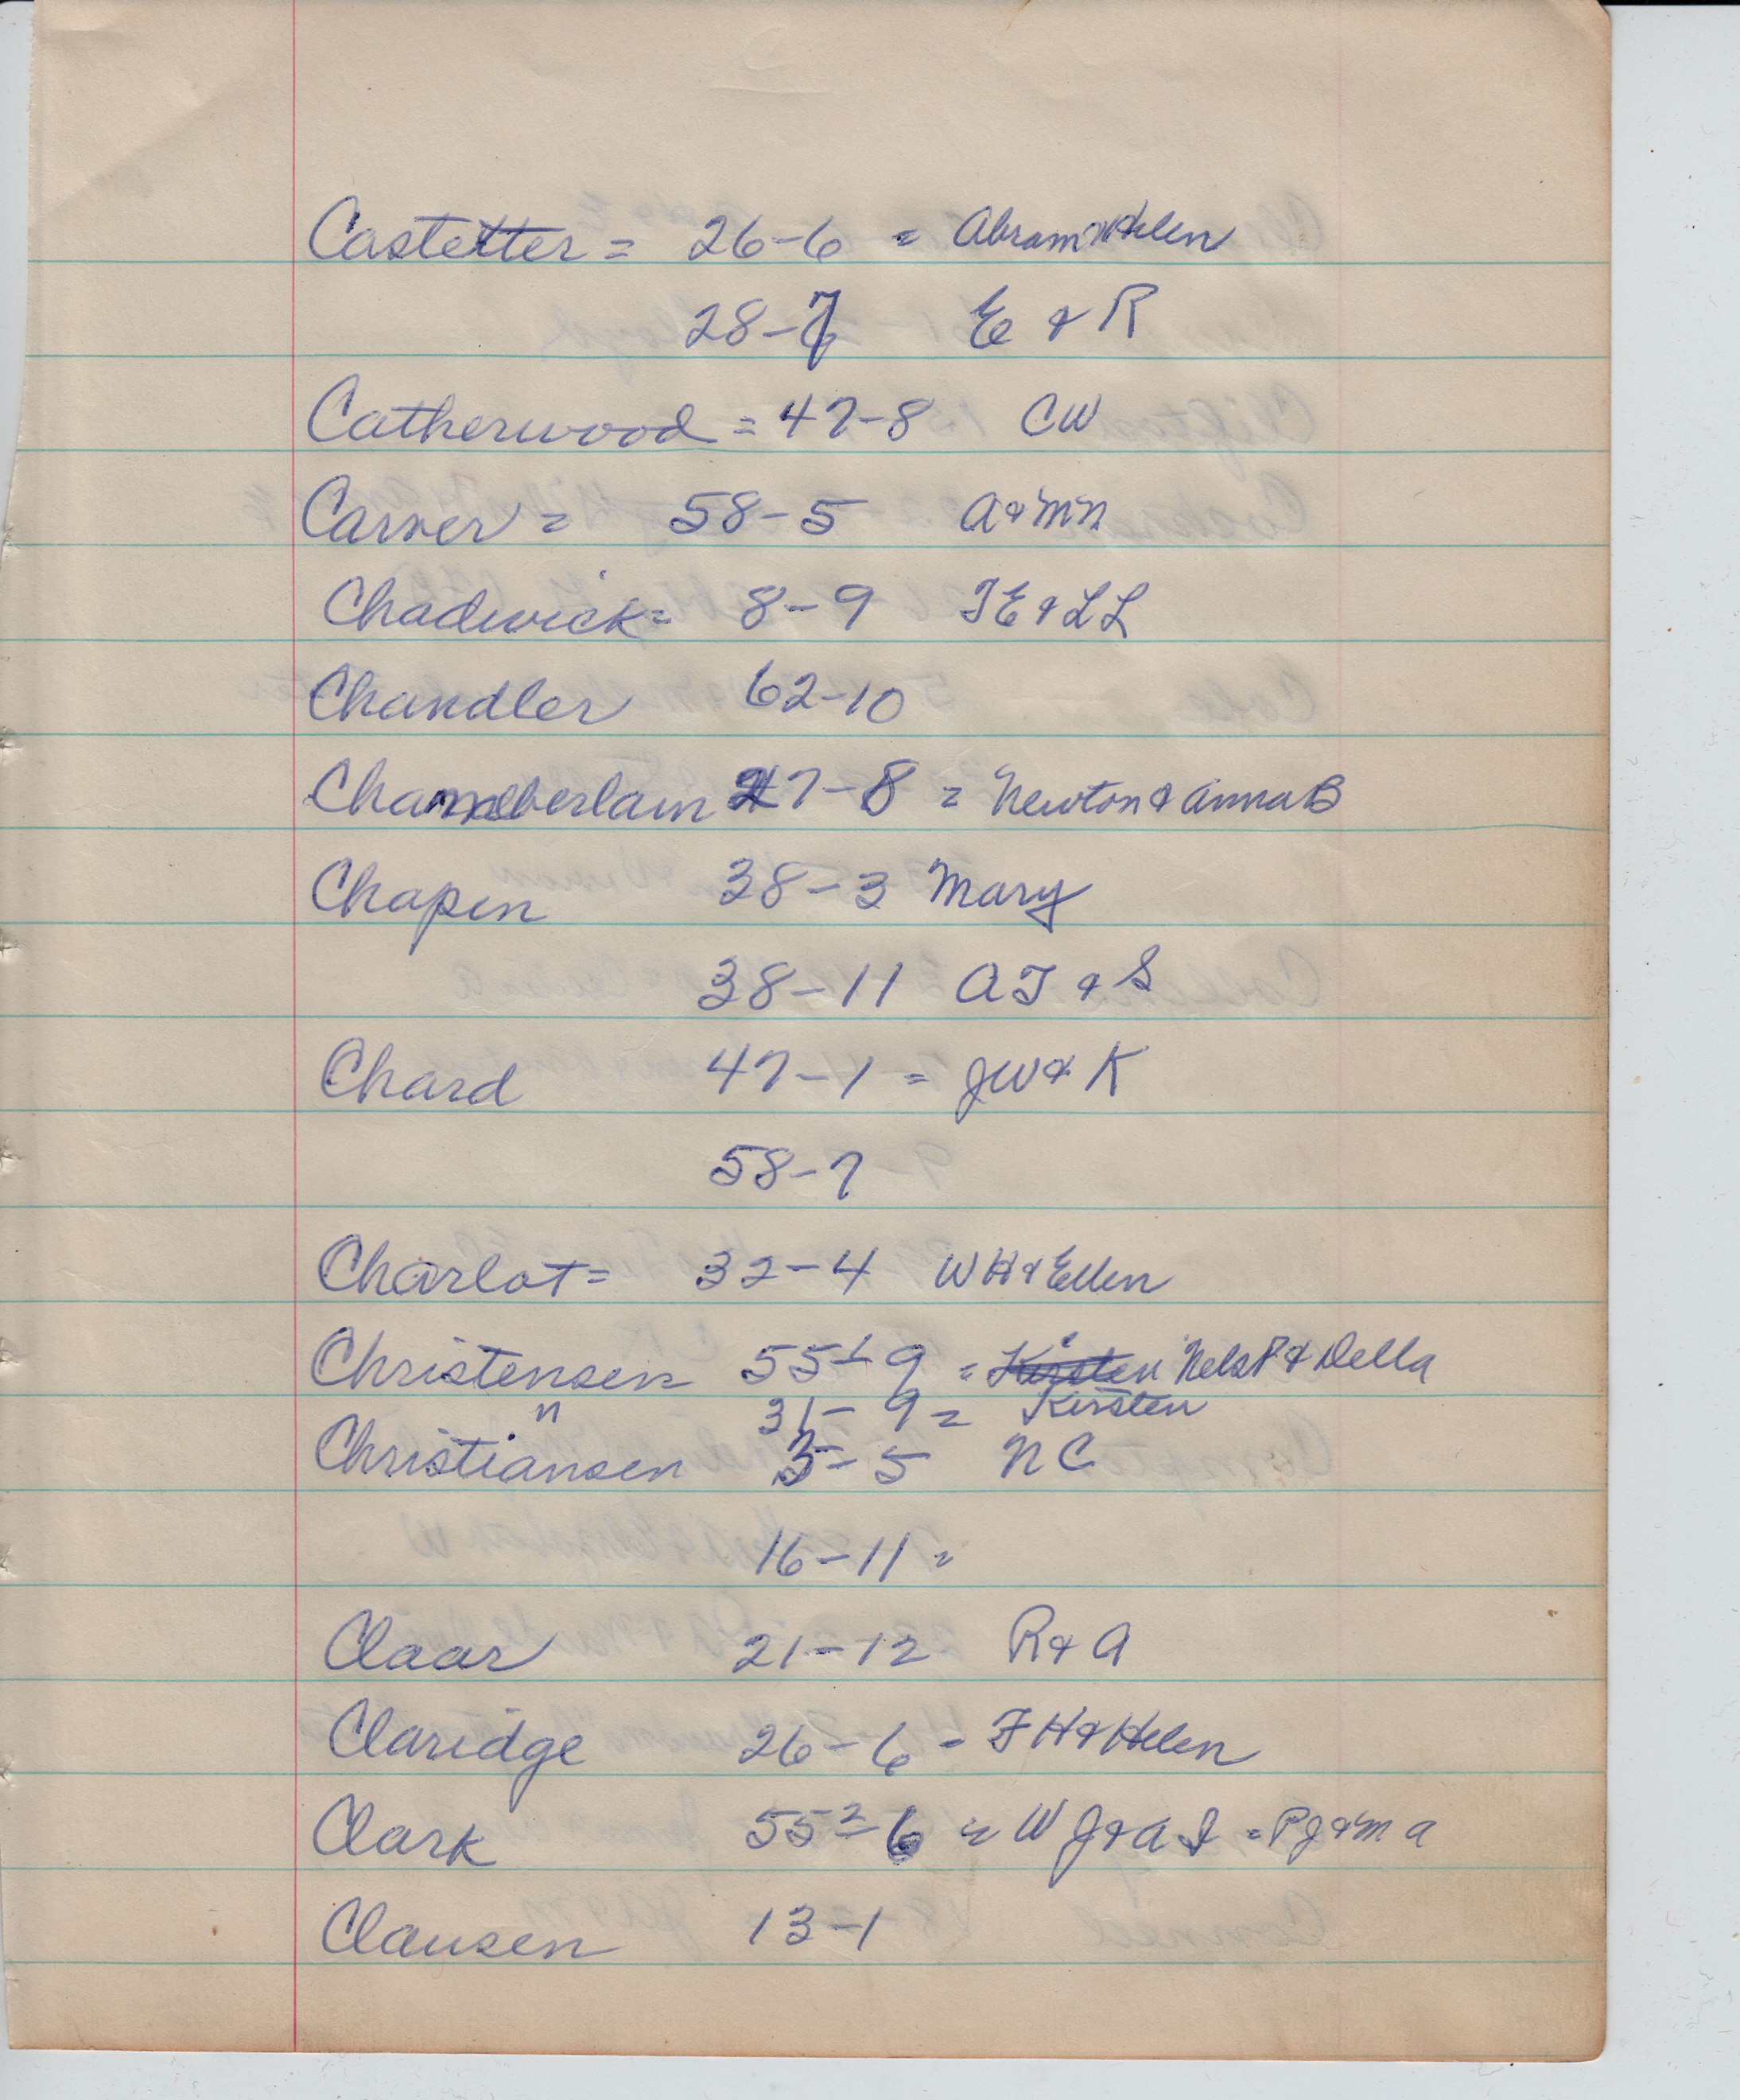 Castetter = 26-6 = Abram & Helen
28-7 E & R
Catherwood = 47-8 CW
Carver = 58-5 A & MN
Chadwick = 8-9 TE & LL
Chandler 62-10
Chamberlain 27-8 = Newton & Anna B
Chapen 38-3 Mary
38-11 AT & S
Chard 47-1 = JW & K
58-7
Charlot = 32-4 WH & Ellen
Christensen 55¹-9 = Kirsten Nels P & Della
" 31-9 = Kirsten
Christiansen 3-5 NC
16-11 =
Claar 21-12 R & A
Claridge 26-6 - FH & Helen
Clark 55²-6 = W J & A I = PJ & M A
Clausen 13-1